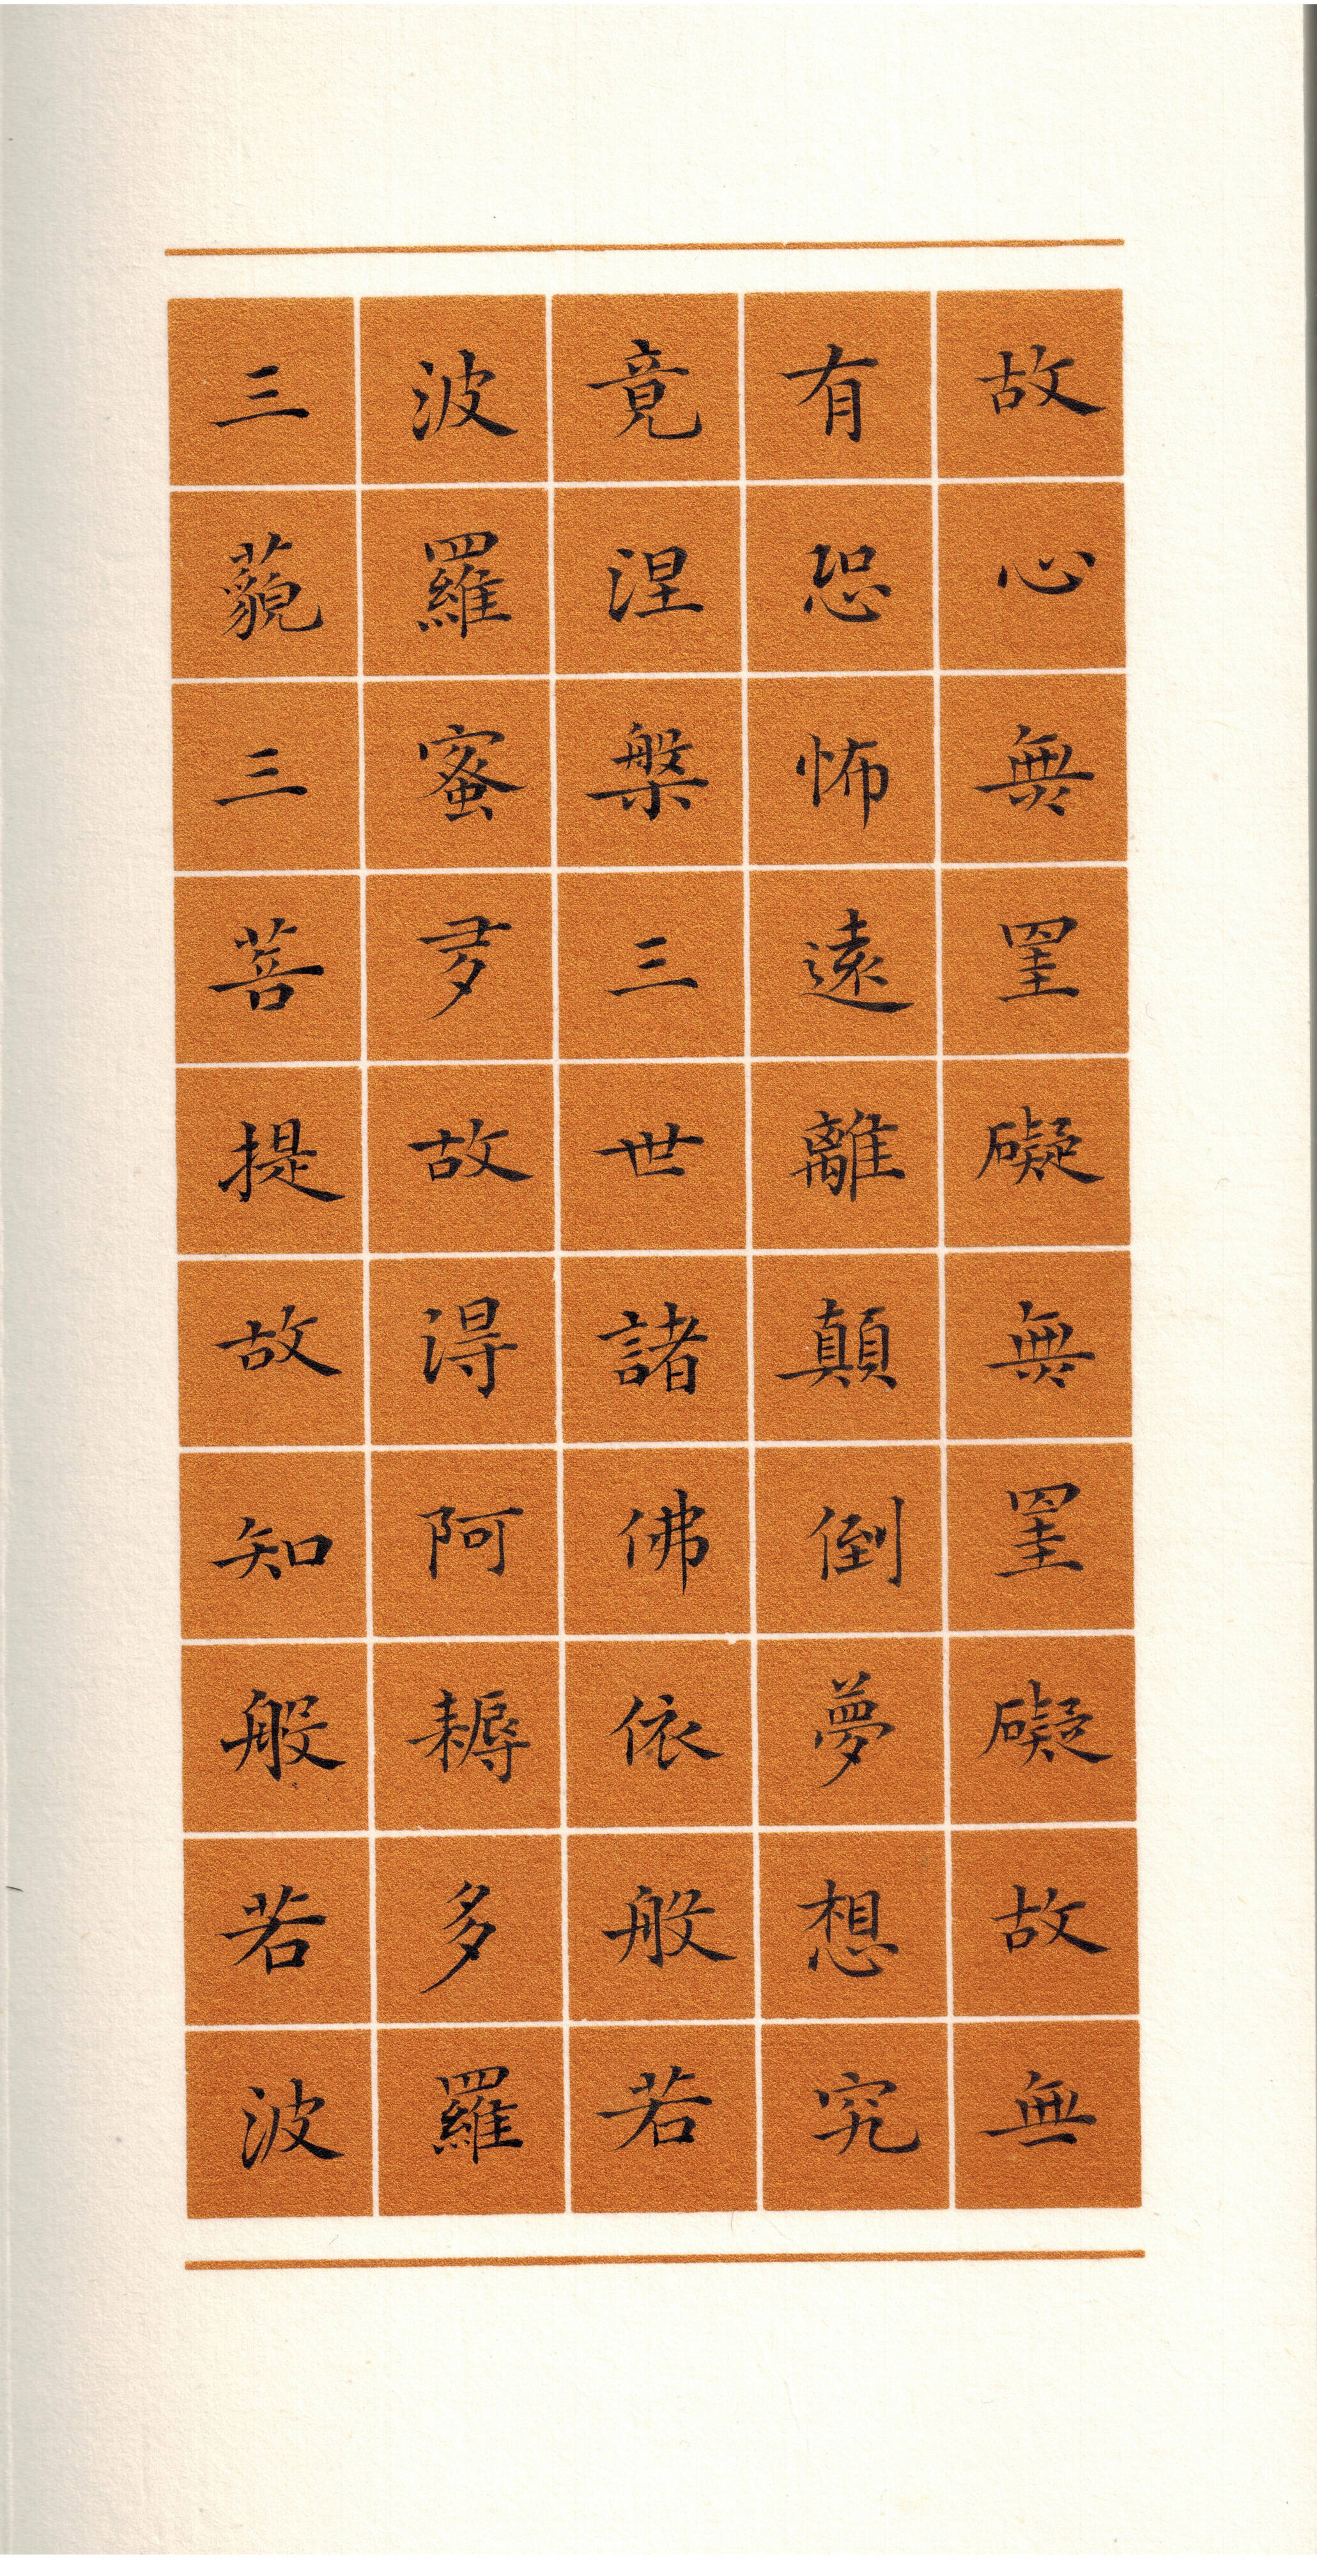 故心無罣礙無罣礙故無
有恐怖遠離顛倒夢想究
竟涅槃三世諸佛依般若
波羅蜜多故得阿耨多羅
三藐三菩提故知般若波